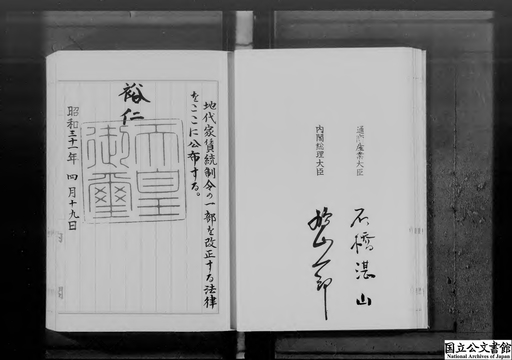 通商産業大臣
石橋湛山
内閣総理大臣
鳩山一郎
地代家賃統制令の一部を改正する法律
をここに公布する。
裕仁
天皇
御璽
昭和三十一年四月十九日
国立公文書館
National Archives of Japan